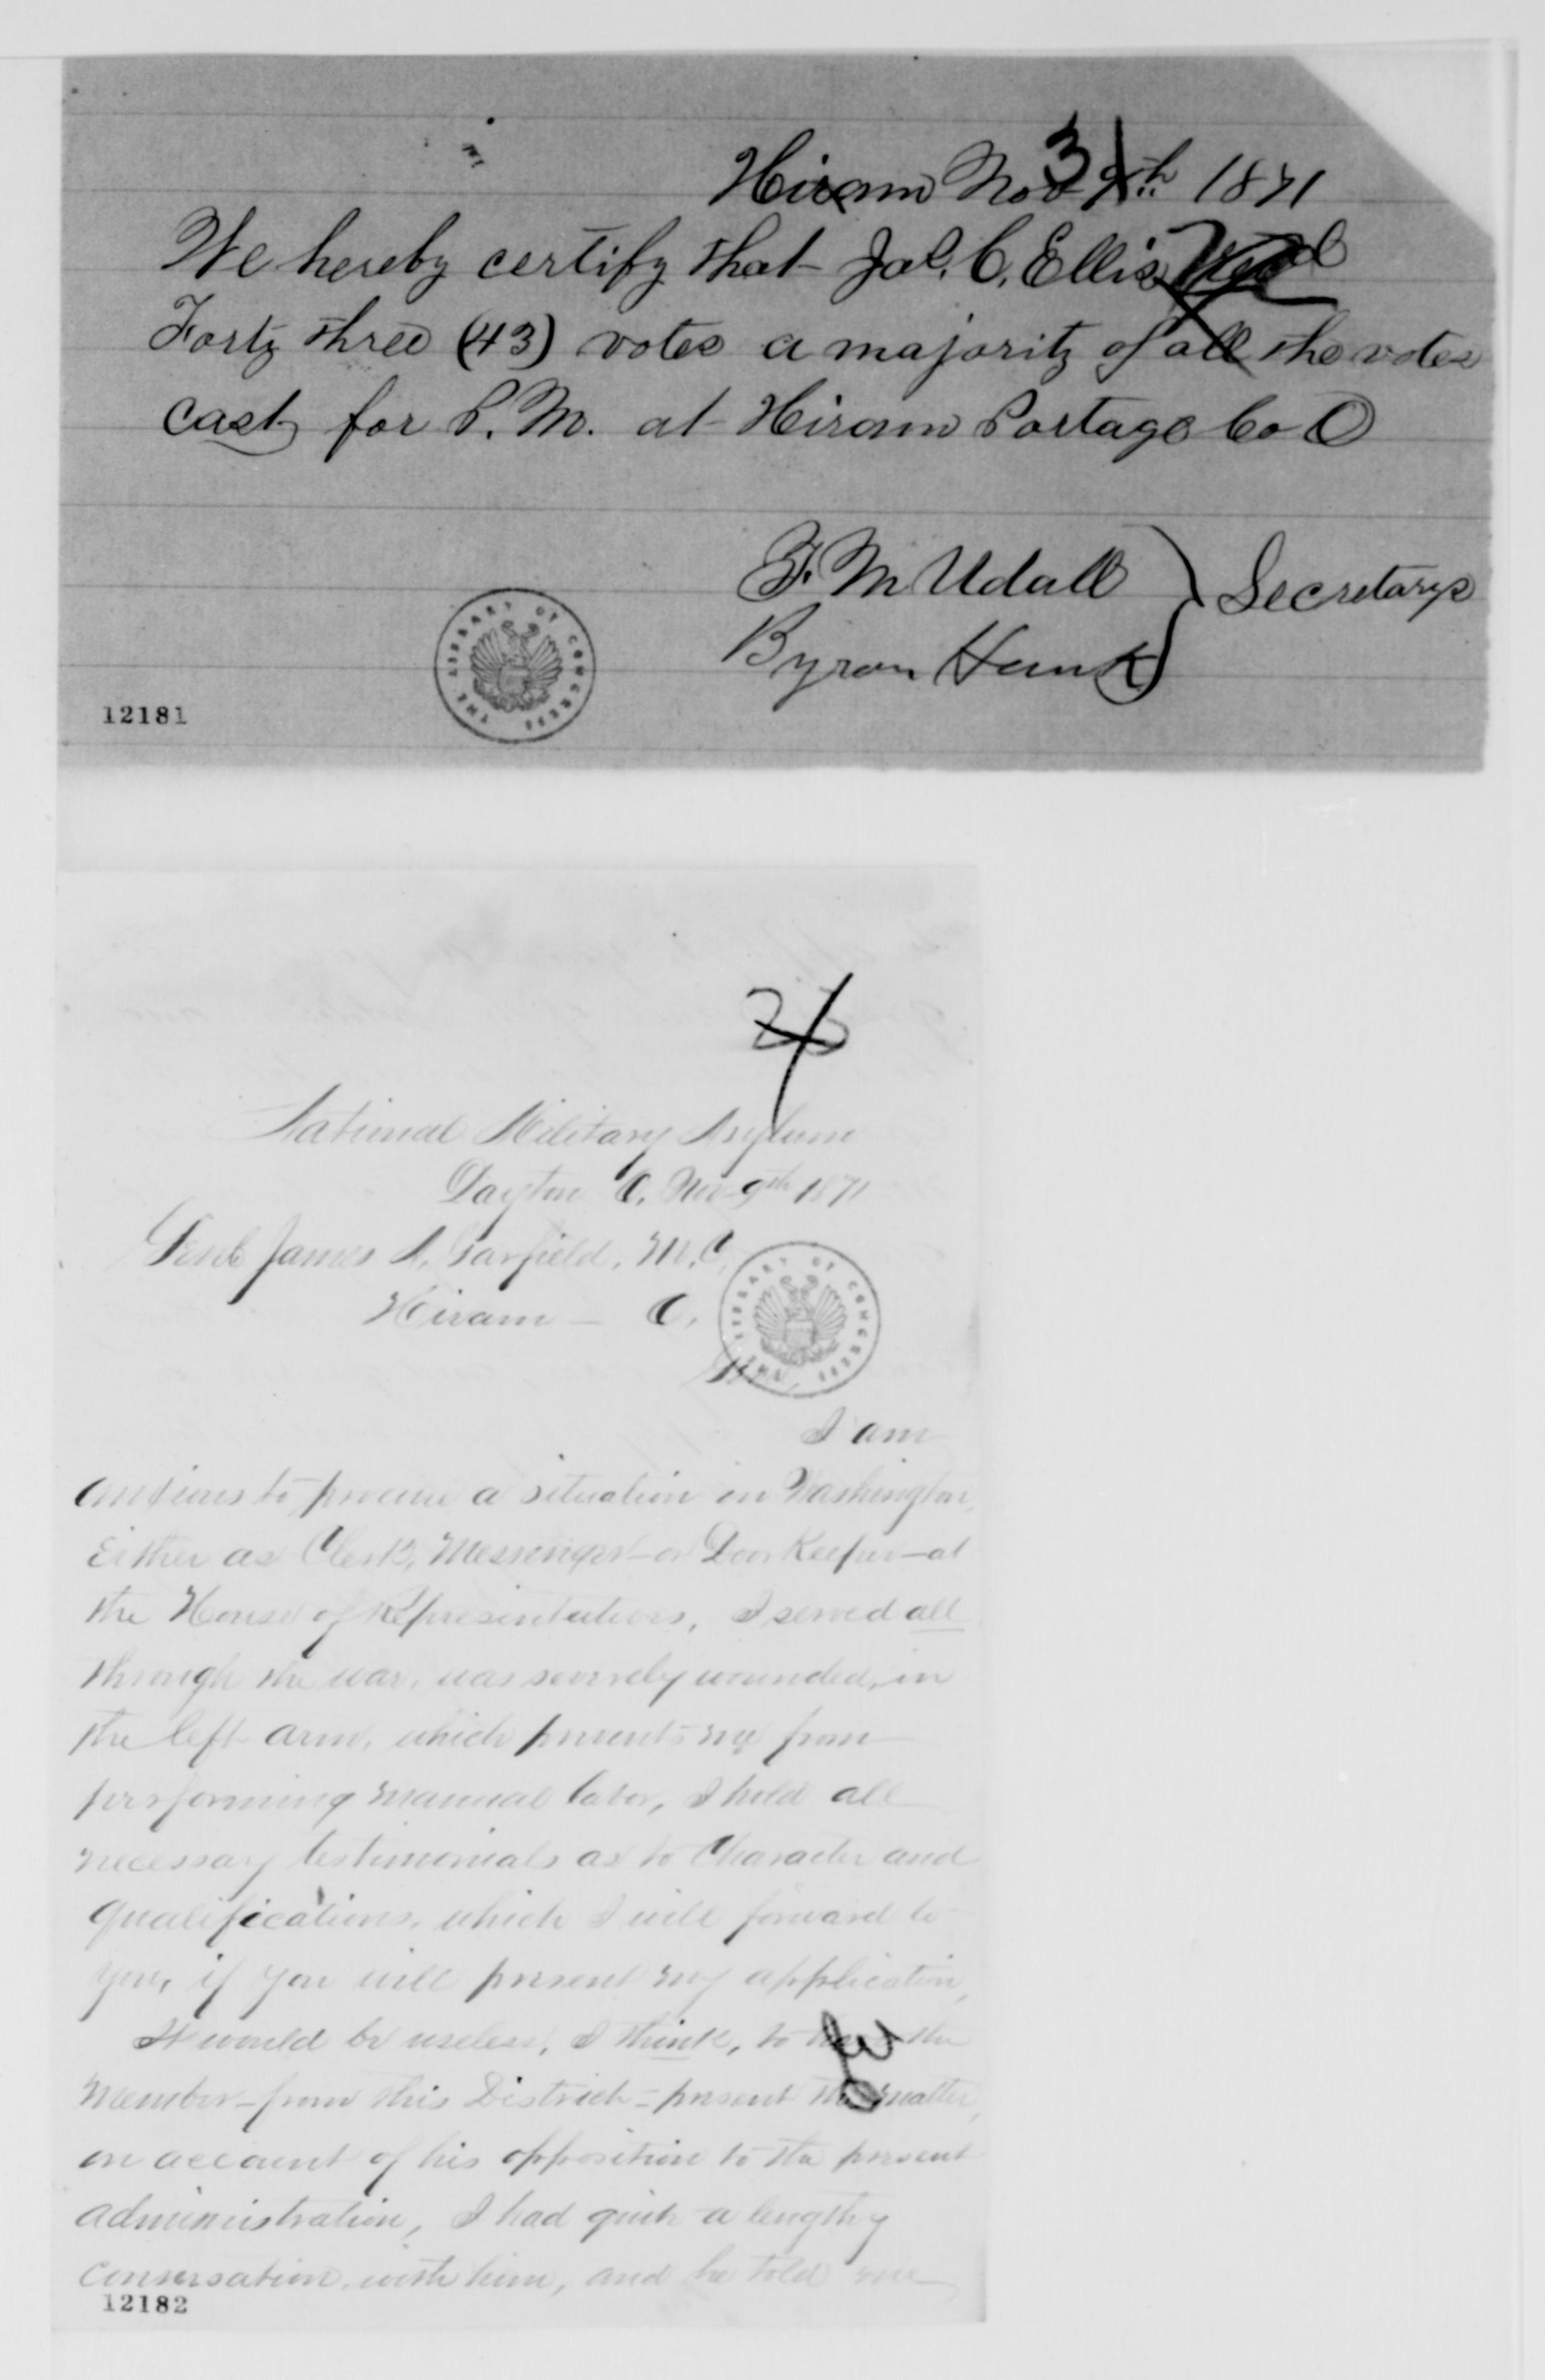 3
Hiram Nov 9th 1871
We hereby certify that Jas. C. Ellis recd
Forty three (43) votes a majority of all the votes
cast for P. M. at Hiram Portage Co O
F. M Udall
Byron Hank
Secretarys
THE LIBRARY OF CONGRESS
12181
National Military Asylum
Dayton O. Nov 9th 1871
Genl James A. Garfield, M.C.
Hiram — O.
THE LIBRARY OF CONGRESS
I am
anxious to procure a situation in Washington,
Either as Clerk, Messenger — or Door Keeper — at
the House of Representatives, I served all
through the war, was severely wounded, in
the left arm, which prevents me from
performing manual labor, I hold all
necessary testimonials as to Character and
qualifications, which I will forward to
you, if you will present my application,
It would be useless, I think, to have the
Member — from this District — present the matter,
on account of his opposition to the present
administration, I had quite a lengthy
conversation, with him, and he told me
12182